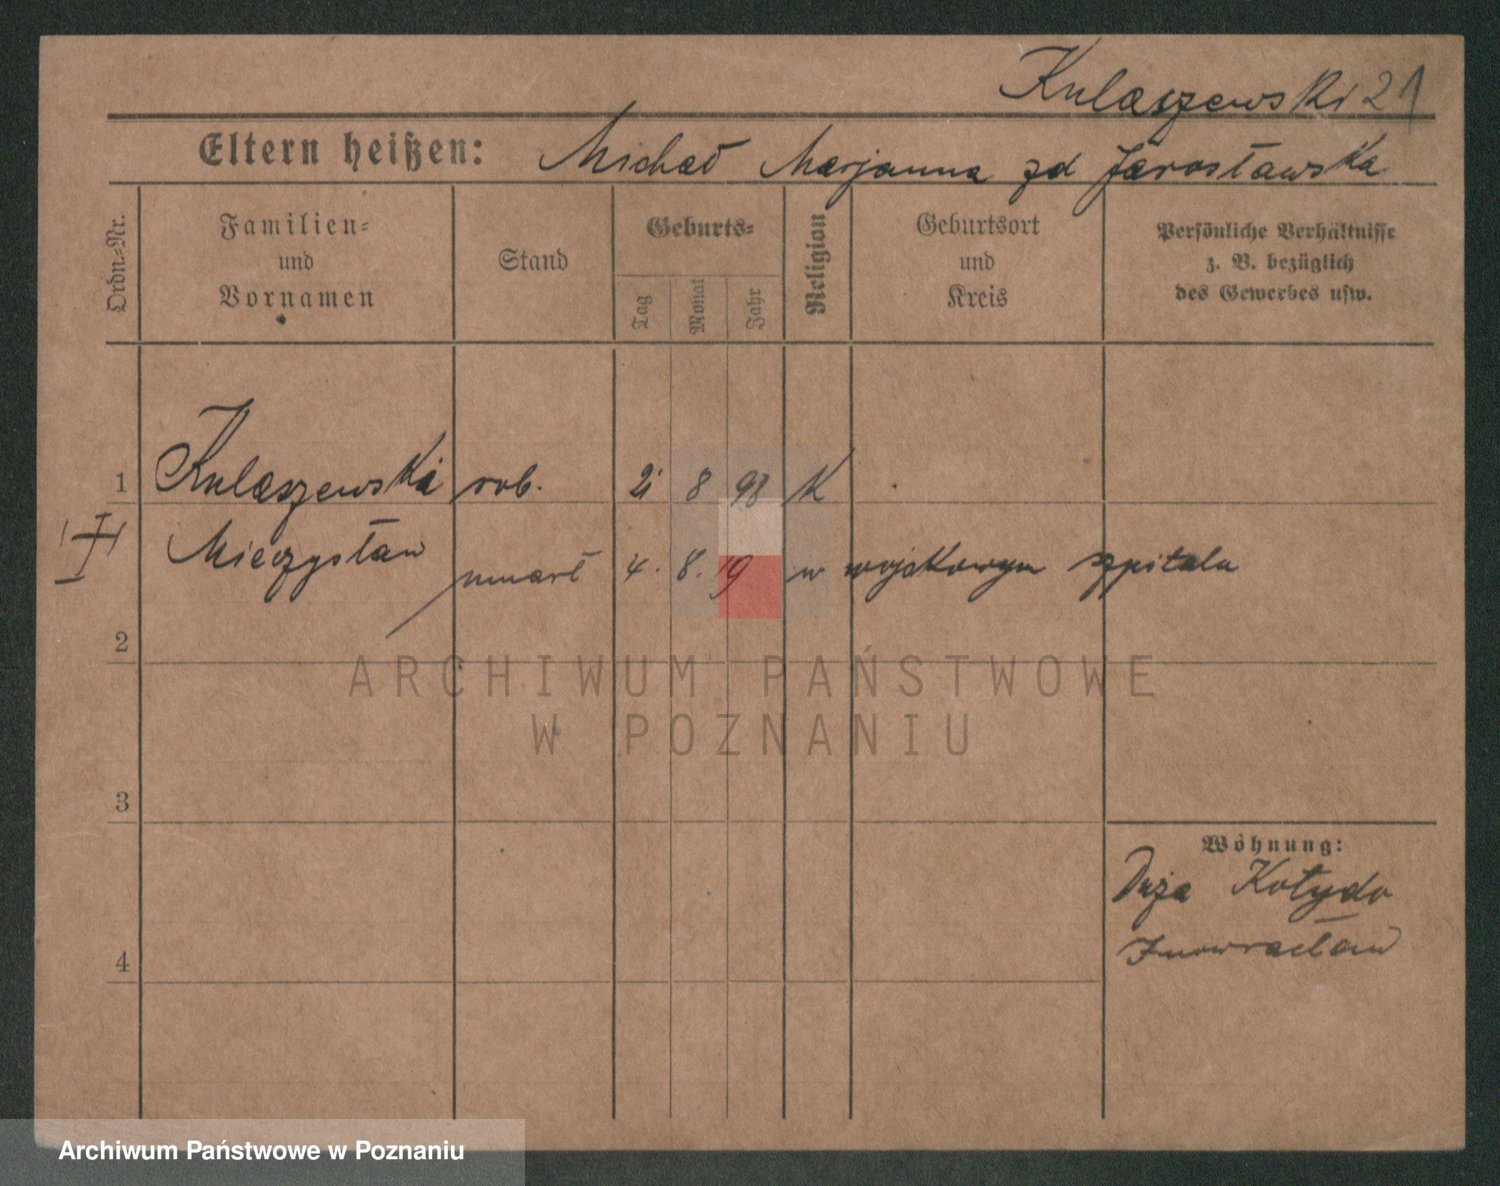 Kulaszewski 21
Eltern heißen: Michał Marjanna zd Jarosławska
Ordn.-Nr.
Familien- und Vornamen
Stand
Geburts-
Tag Monat Jahr
Religion
Geburtsort und Kreis
Persönliche Verhältnisse z. B. bezüglich des Gewerbes usw.
1 Kulaszewski rob. 8 98 K
Mieczysław
umarł 4. 8. 19 w wojskowym szpitalu
2
ARCHIWUM PAŃSTWOWE
W POZNANIU
3
Wohnung:
4
Inowrocław
Archiwum Państwowe w Poznaniu